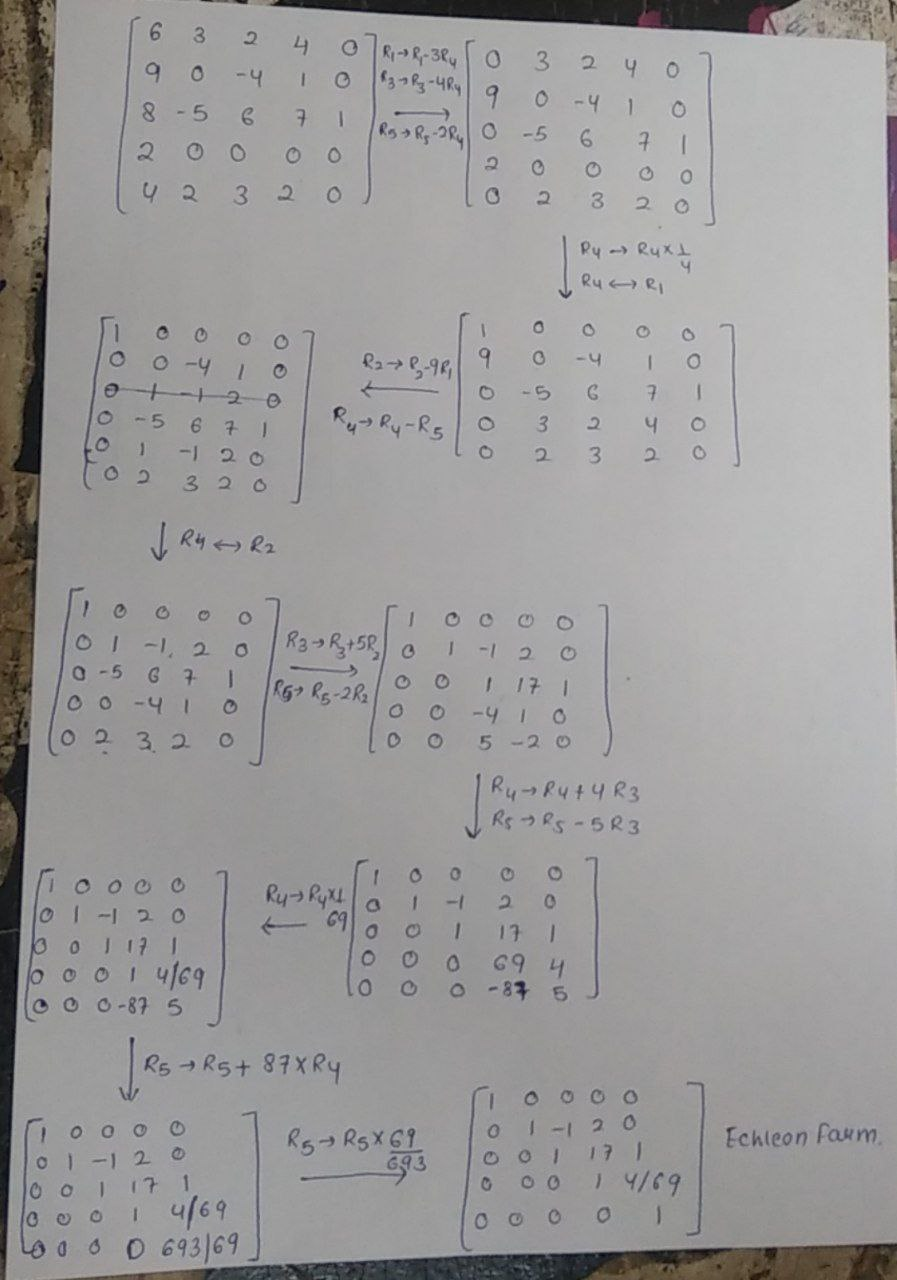 6 3 2 4 0
9 0 -4 1 0
8 -5 6 7 1
2 0 0 0 0
4 2 3 2 0
R1→R1-3R4
R3→R3-4R4
R5→R5-2R4
0 3 2 4 0
9 0 -4 1 0
0 -5 6 7 1
2 0 0 0 0
0 2 3 2 0
R4→R4×1/4
R4↔R1
1 0 0 0 0
9 0 -4 1 0
0 -5 6 7 1
0 3 2 4 0
0 2 3 2 0
R2→R2-9R1
R4→R4-R5
1 0 0 0 0
0 0 -4 1 0
0 1 -1 2 0
0 -5 6 7 1
0 1 -1 2 0
0 2 3 2 0
R4↔R2
1 0 0 0 0
0 1 -1 2 0
0 -5 6 7 1
0 0 -4 1 0
0 2 3 2 0
R3→R3+5R2
R5→R5-2R2
1 0 0 0 0
0 1 -1 2 0
0 0 1 17 1
0 0 -4 1 0
0 0 5 -2 0
R4→R4+4R3
R5→R5-5R3
1 0 0 0 0
0 1 -1 2 0
0 0 1 17 1
0 0 0 69 4
0 0 0 -87 5
R4→R4×1/69
1 0 0 0 0
0 1 -1 2 0
0 0 1 17 1
0 0 0 1 4/69
0 0 0 -87 5
R5→R5+87×R4
1 0 0 0 0
0 1 -1 2 0
0 0 1 17 1
0 0 0 1 4/69
0 0 0 0 693/69
R5→R5×69/693
1 0 0 0 0
0 1 -1 2 0
0 0 1 17 1
0 0 0 1 4/69
0 0 0 0 1
Echleon Form.